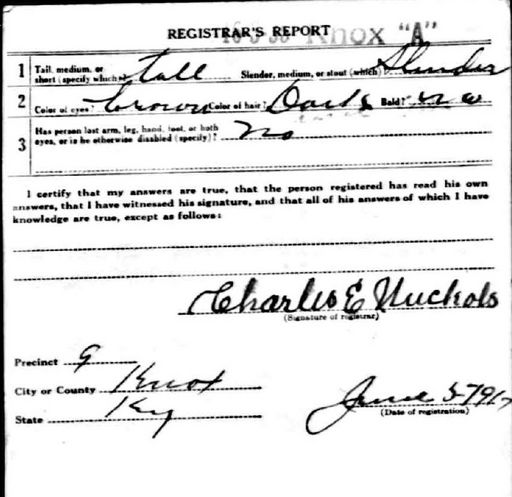 REGISTRAR'S REPORT
Knox "A"
1 Tall, medium, or short (specify which)? tall Slender, medium, or stout (which)? Slender
2 Color of eyes? brown Color of hair? Dark Bald? no
3 Has person lost arm, leg, hand, foot, or both eyes, or is he otherwise disabled (specify)? No
I certify that my answers are true, that the person registered has read his own
answers, that I have witnessed his signature, and that all of his answers of which I have
knowledge are true, except as follows:
Charles E Nuckols
(Signature of registrar)
Precinct 9
City or County Knox
State Ky
June 5-1917
(Date of registration)